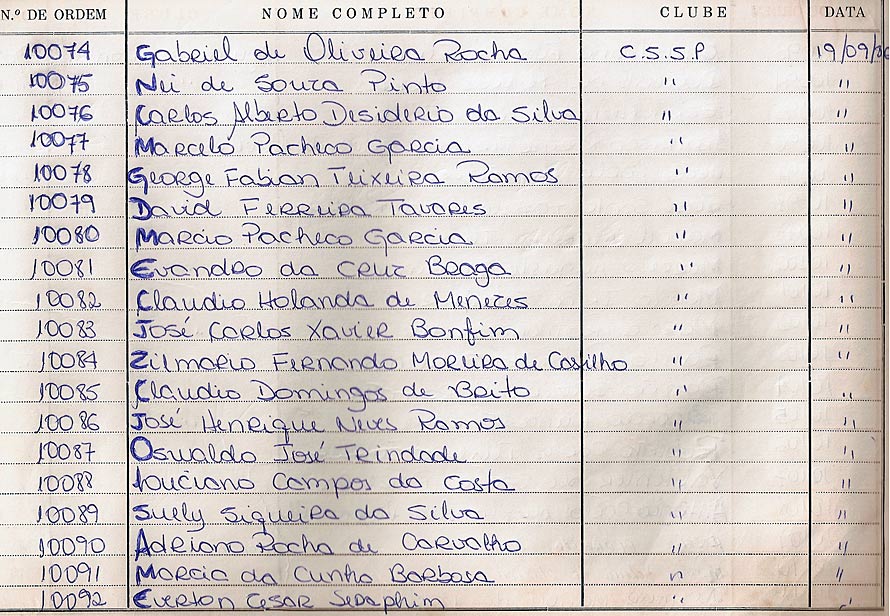 N.º DE ORDEM NOME COMPLETO CLUBE DATA
10074 Gabriel de Oliveira Rocha C.S.S.P 19/09/
10075 Nei de Souza Pinto " "
10076 Carlos Alberto Desiderio da Silva " "
10077 Marcelo Pacheco Garcia " "
10078 George Fabian Teixeira Ramos " "
10079 David Ferreira Tavares " "
10080 Marcio Pacheco Garcia " "
10081 Evandro da Cruz Braga " "
10082 Claudio Holanda de Menezes " "
10083 José Carlos Xavier Bonfim " "
10084 Zilmario Fernando Moreira de Casilho " "
10085 Claudio Domingos de Brito " "
10086 José Henrique Neves Ramos " "
10087 Oswaldo José Trindade " "
10088 Louciano Campos da Costa " "
10089 Suely Siqueira da Silva " "
10090 Adriano Rocha de Carvalho " "
10091 Marcia da Cunha Barbosa " "
10092 Everton Cesar Seraphim " "